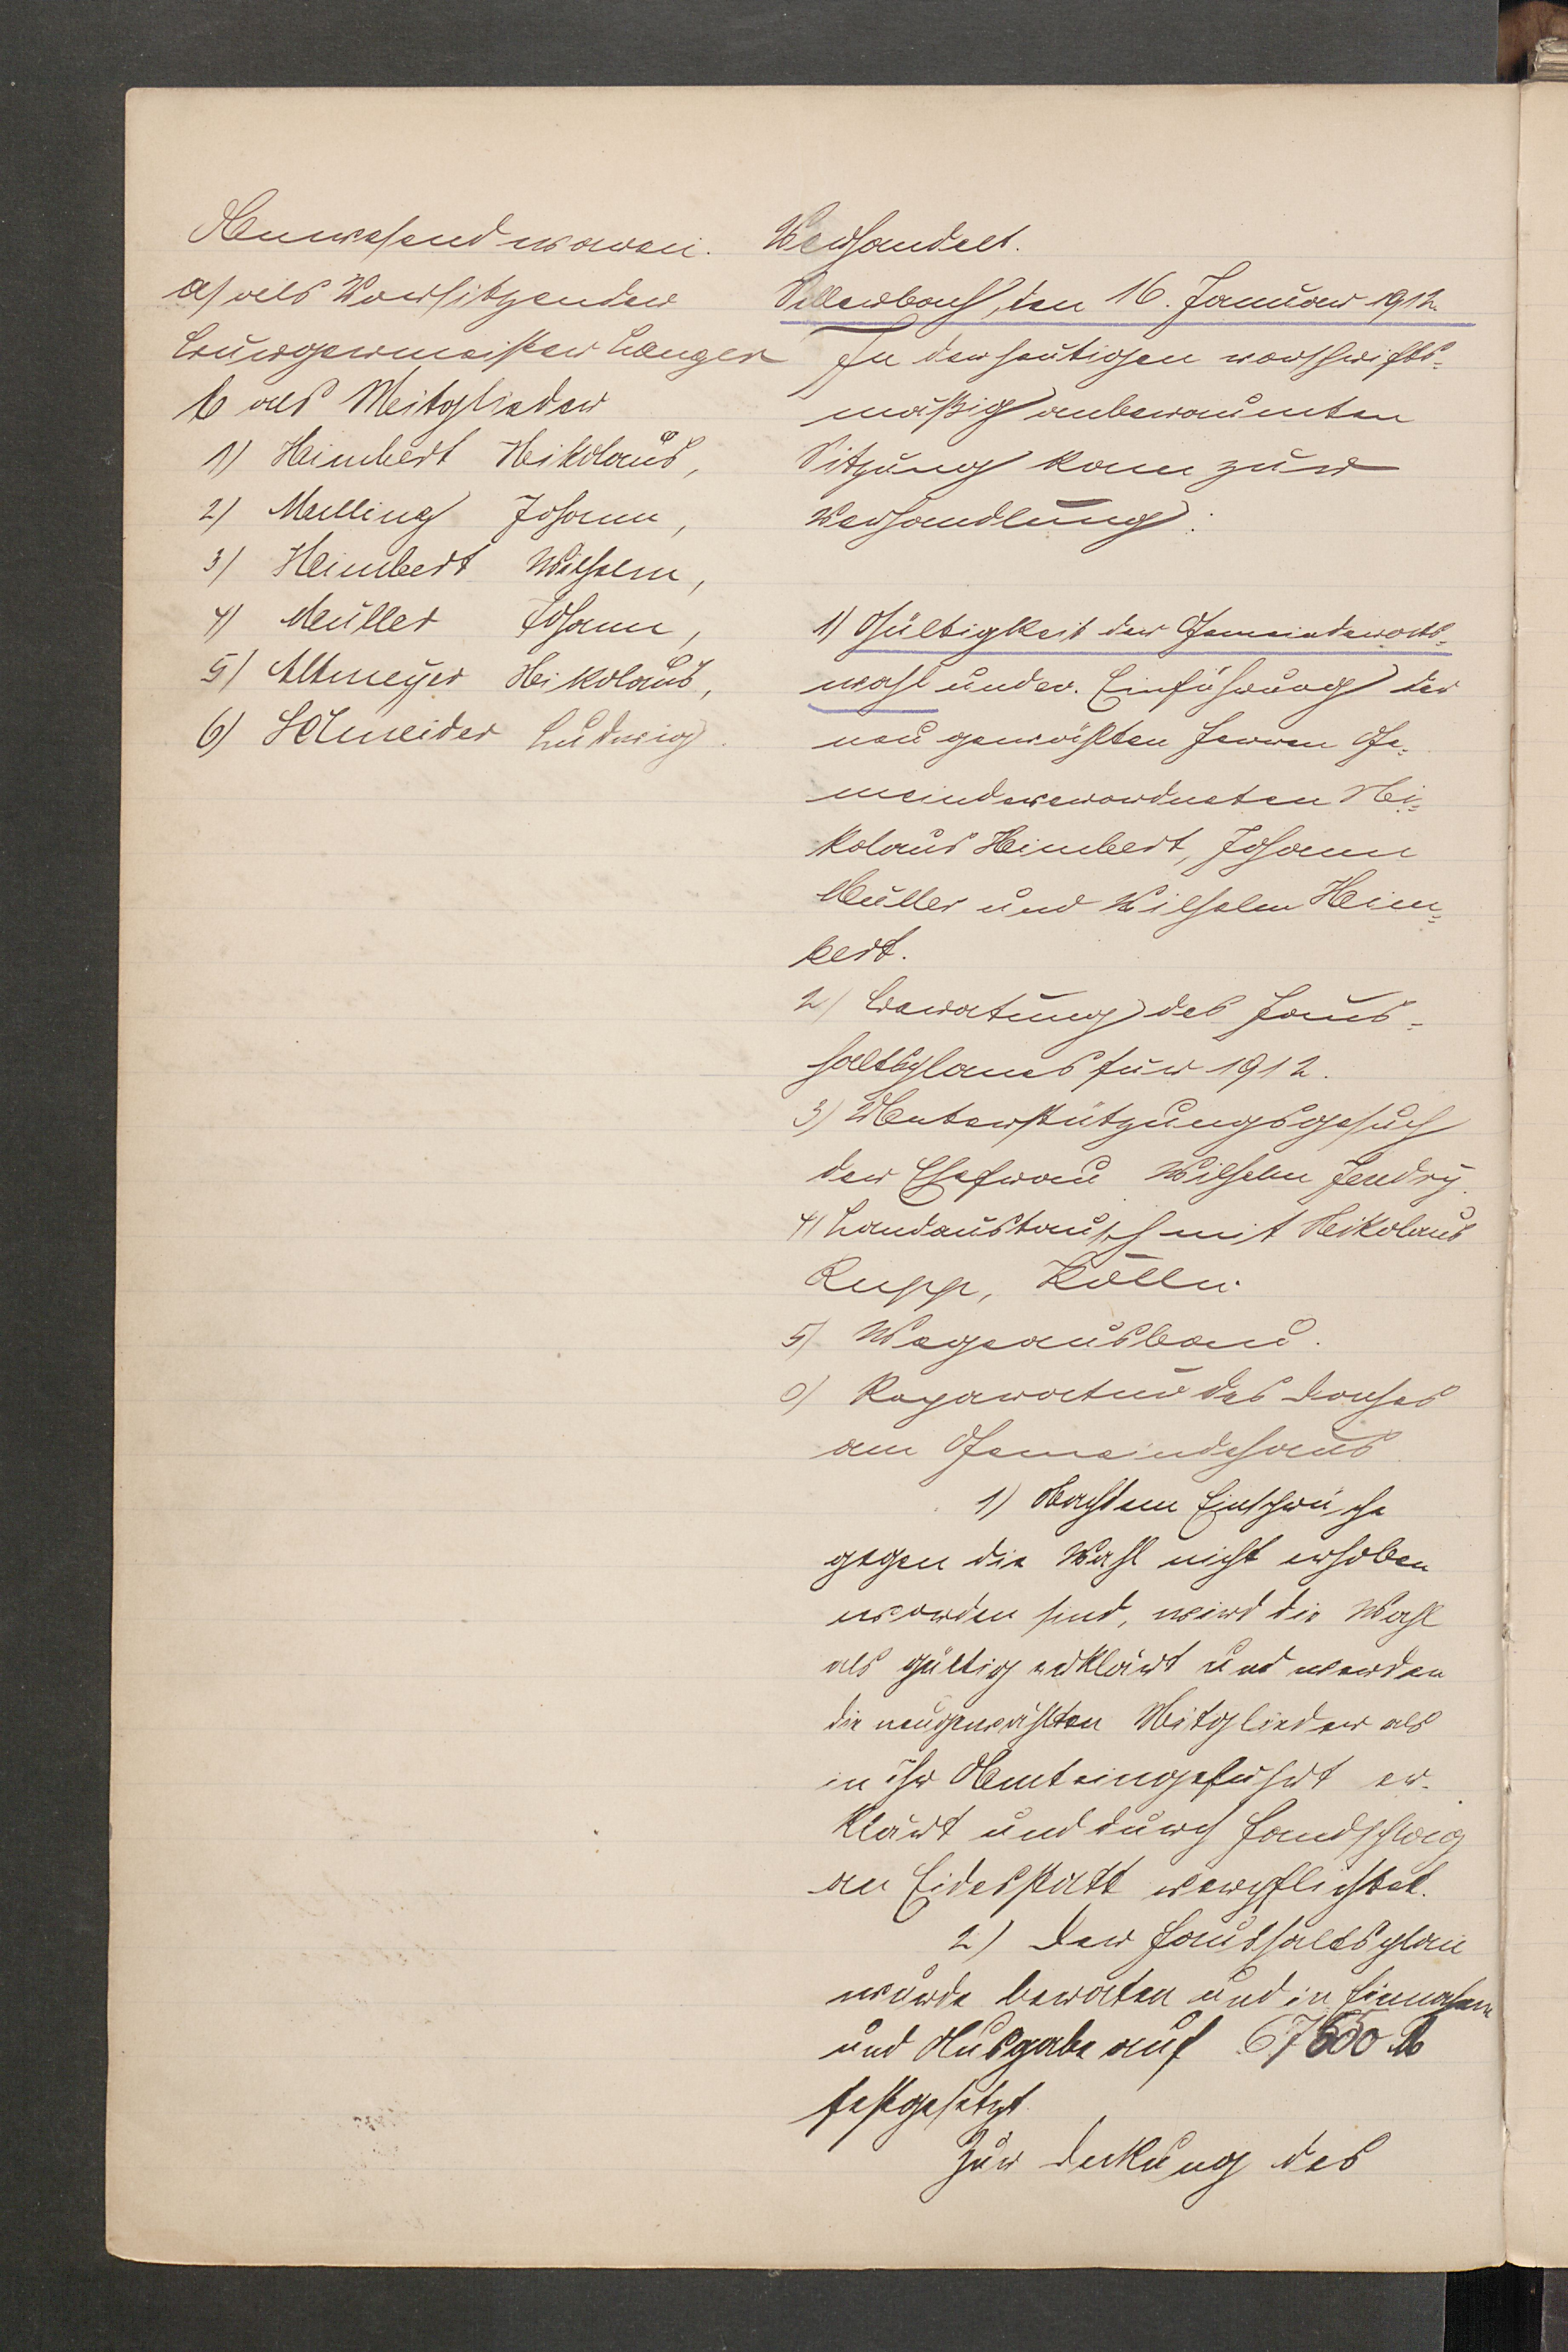 Anwesend waren.
a) als Vorsitzender
Bürgermeister Langer
b als Mitglieder
1) Heimbert Nikolaus,
2) Melling Johann,
3) Heimbert Wilhelm,
4) Müller Johann,
5) Altmeyer Nikolaus,
6) Schneider Ludwig.
Verhandelt.
Sellerbach, den 16. Januar 1912.
In der heutigen vorschrifts=
mäßig anberaumten
Sitzung kam zur
Verhandlung:
1) Gültigkeit der Gemeinderats=
wahl und ev. Einführung der
neu gewählten Herren Ge=
meindeverordneten Ni=
kolaus Heimbert, Johann
Müller und Wilhelm Heim=
bert.
2) Beratung des Haus=
haltsplanes für 1912.
3) Unterstützungsgesuch
der Ehefrau Wilhelm Hendry.
4) Landaustausch mit Nikolaus
Rupp, Kölln.
5) Wegeausbau.
6) Reparatur des Daches
am Gemeindehaus
1) Nachdem Einsprüche
gegen die Wahl nicht erhoben
worden sind, wird die Wahl
als gültig erklärt und werden
die neugewählten Mitglieder als
in ihr Amt eingeführt er=
klärt und durch Handschlag
an Eidesstatt verpflichtet.
2) Der Haushaltsplan
wurde beraten und in Einnahme
und Ausgabe auf 67500 M
festgesetzt.
Zur Deckung des